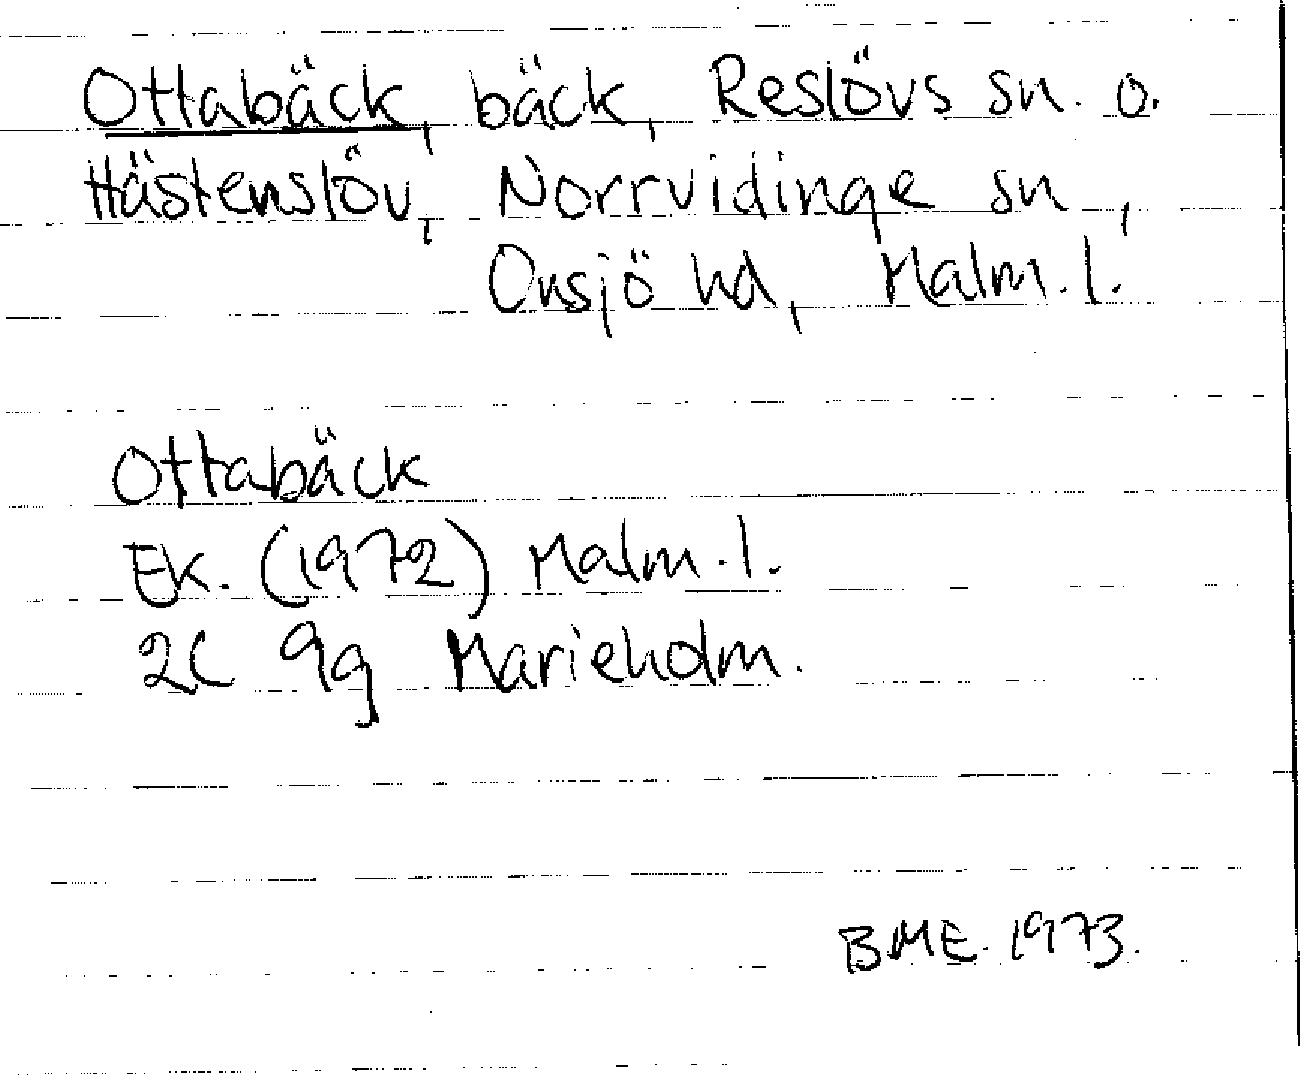 Ottabäck, bäck, Reslövs sn. o.
Hästenslöv, Norrvidinge sn,
Onsjö hd, Malm.l.
Ottabäck
EK. (1972) Malm.l.
2C 9g Marieholm.
BME. 1973.